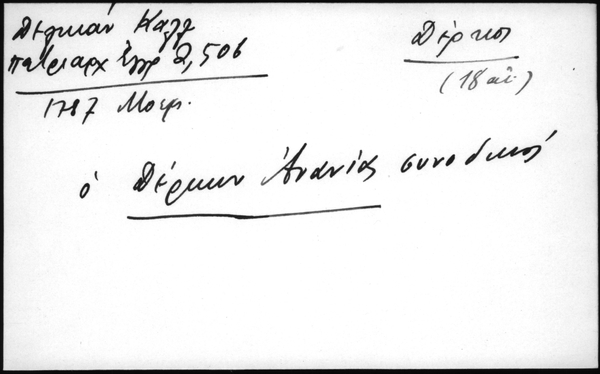 Δελικάν Καλλ
πατριαρχ Εγγρ 2,506
1787 Μοιρ.
Δέρκοι
(18 αἰ.)
ὁ Δέρκων Ἀνανίας συνοδικός